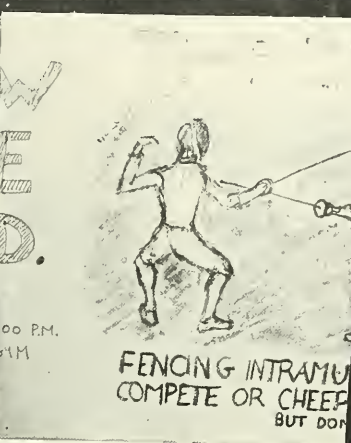 W
E
D.
00 P.M.
YM
FENCING INTRAMU
COMPETE OR CHEER
BUT DON